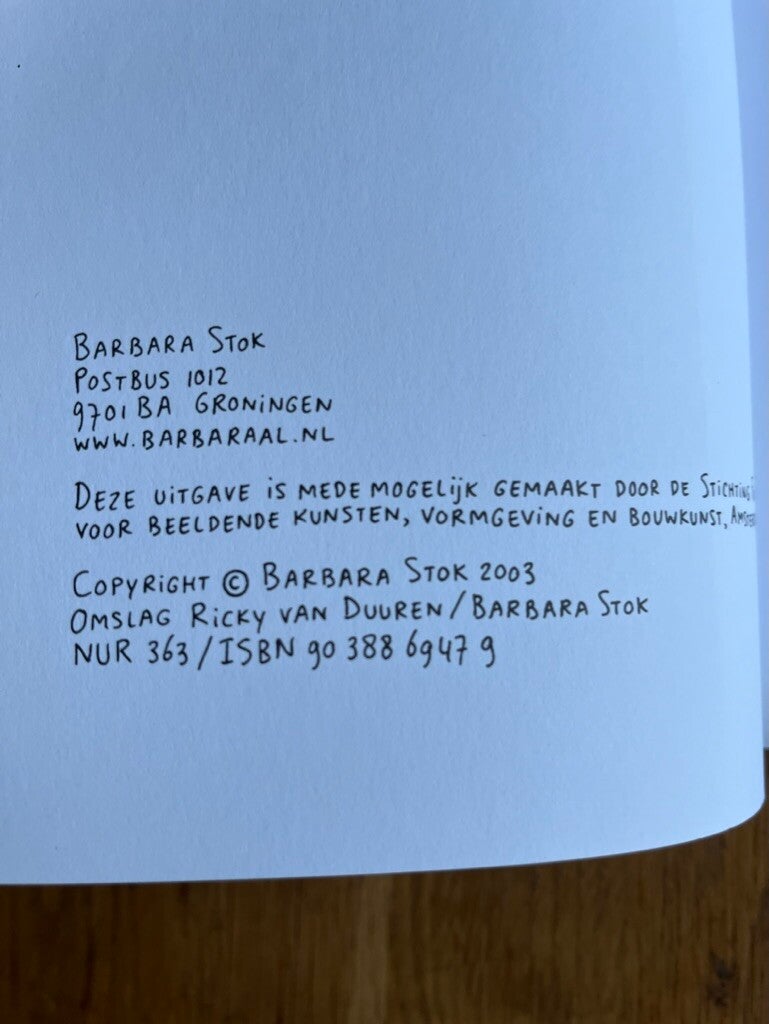 Barbara Stok
Postbus 1012
9701 BA Groningen
www.barbaraal.nl
Deze uitgave is mede mogelijk gemaakt door de Stichting
voor beeldende kunsten, vormgeving en bouwkunst,
Copyright © Barbara Stok 2003
Omslag Ricky van Duuren / Barbara Stok
NUR 363 / ISBN 90 388 6947 9